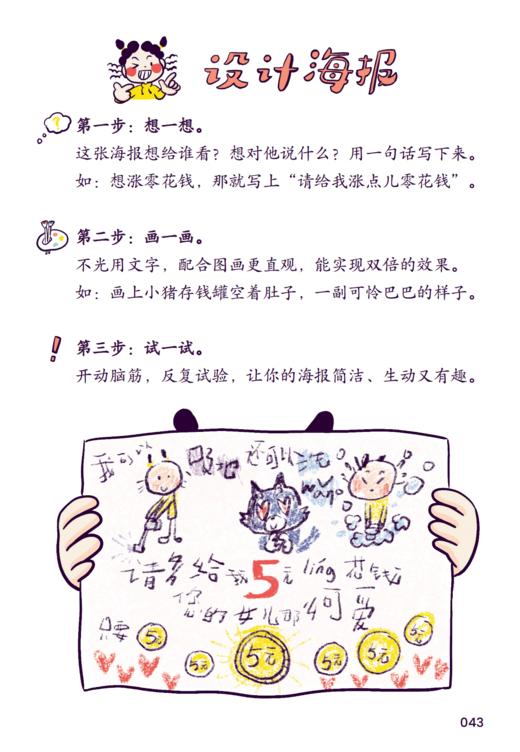 设计海报
第一步：想一想。
这张海报想给谁看？想对他说什么？用一句话写下来。
如：想涨零花钱，那就写上“请给我涨点儿零花钱”。
第二步：画一画。
不光用文字，配合图画更直观，能实现双倍的效果。
如：画上小猪存钱罐空着肚子，一副可怜巴巴的样子。
第三步：试一试。
开动脑筋，反复试验，让你的海报简洁、生动又有趣。
我可以 吸地 还可以洗
请多给我5元 líng 花钱
您的女儿那么可爱
只要 5元 5元 5元 5元 5元 5元
043